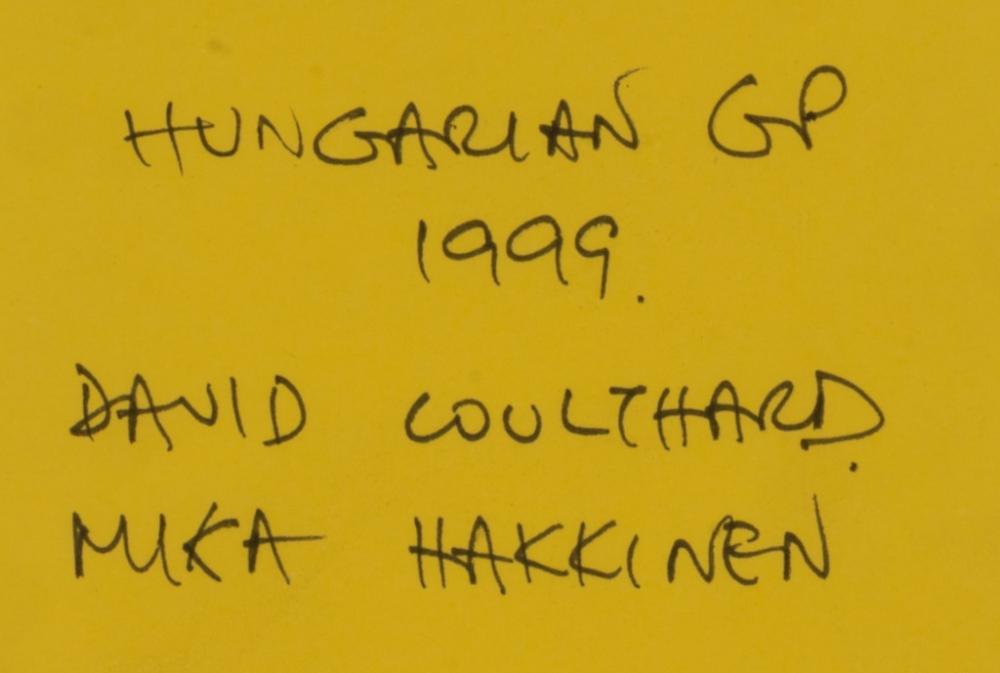 HUNGARIAN GP
1999.
DAVID COULTHARD.
MIKA HAKKINEN